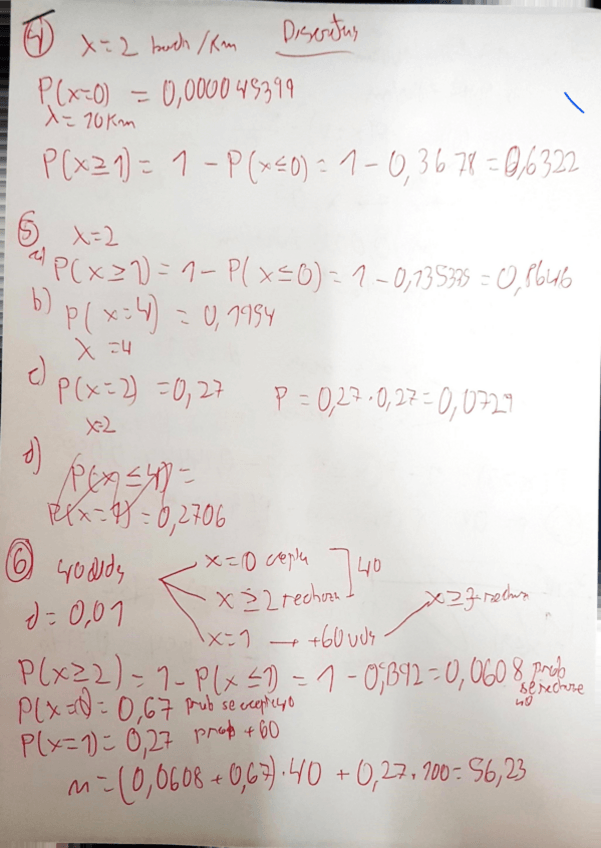 4) λ=2 bach/Km Discretas
P(x=0) = 0,000045399
λ=10Km
P(x≥1) = 1 - P(x≤0) = 1 - 0,3678 = 0,6322
5) λ=2
a) P(x≥1) = 1 - P(x≤0) = 1 - 0,135335 = 0,8646
b) P(x=4) = 0,1954
λ=4
c) P(x=2) = 0,27 P = 0,27·0,27 = 0,0729
λ=2
d) P(x≤4) =
P(x=1) = 0,2706
6) 40uds x=0 acepta 40
d=0,01 x≥2 rechaza x≥3 rechaza
x=1 → +60uds
P(x≥2) = 1 - P(x≤1) = 1 - 0,9392 = 0,0608 prob se rechace 40
P(x=0) = 0,67 prob se acepte 40
P(x=1) = 0,27 prob +60
m = (0,0608 + 0,67)·40 + 0,27·100 = 56,23